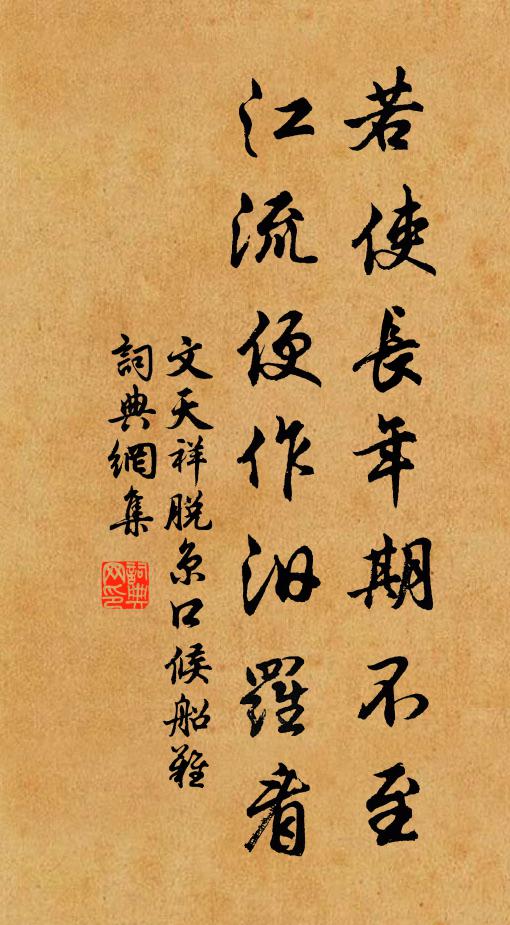 若使長年期不至
江流便作汨羅看
文天祥脱京口候船難
詞典網集
詞典网印